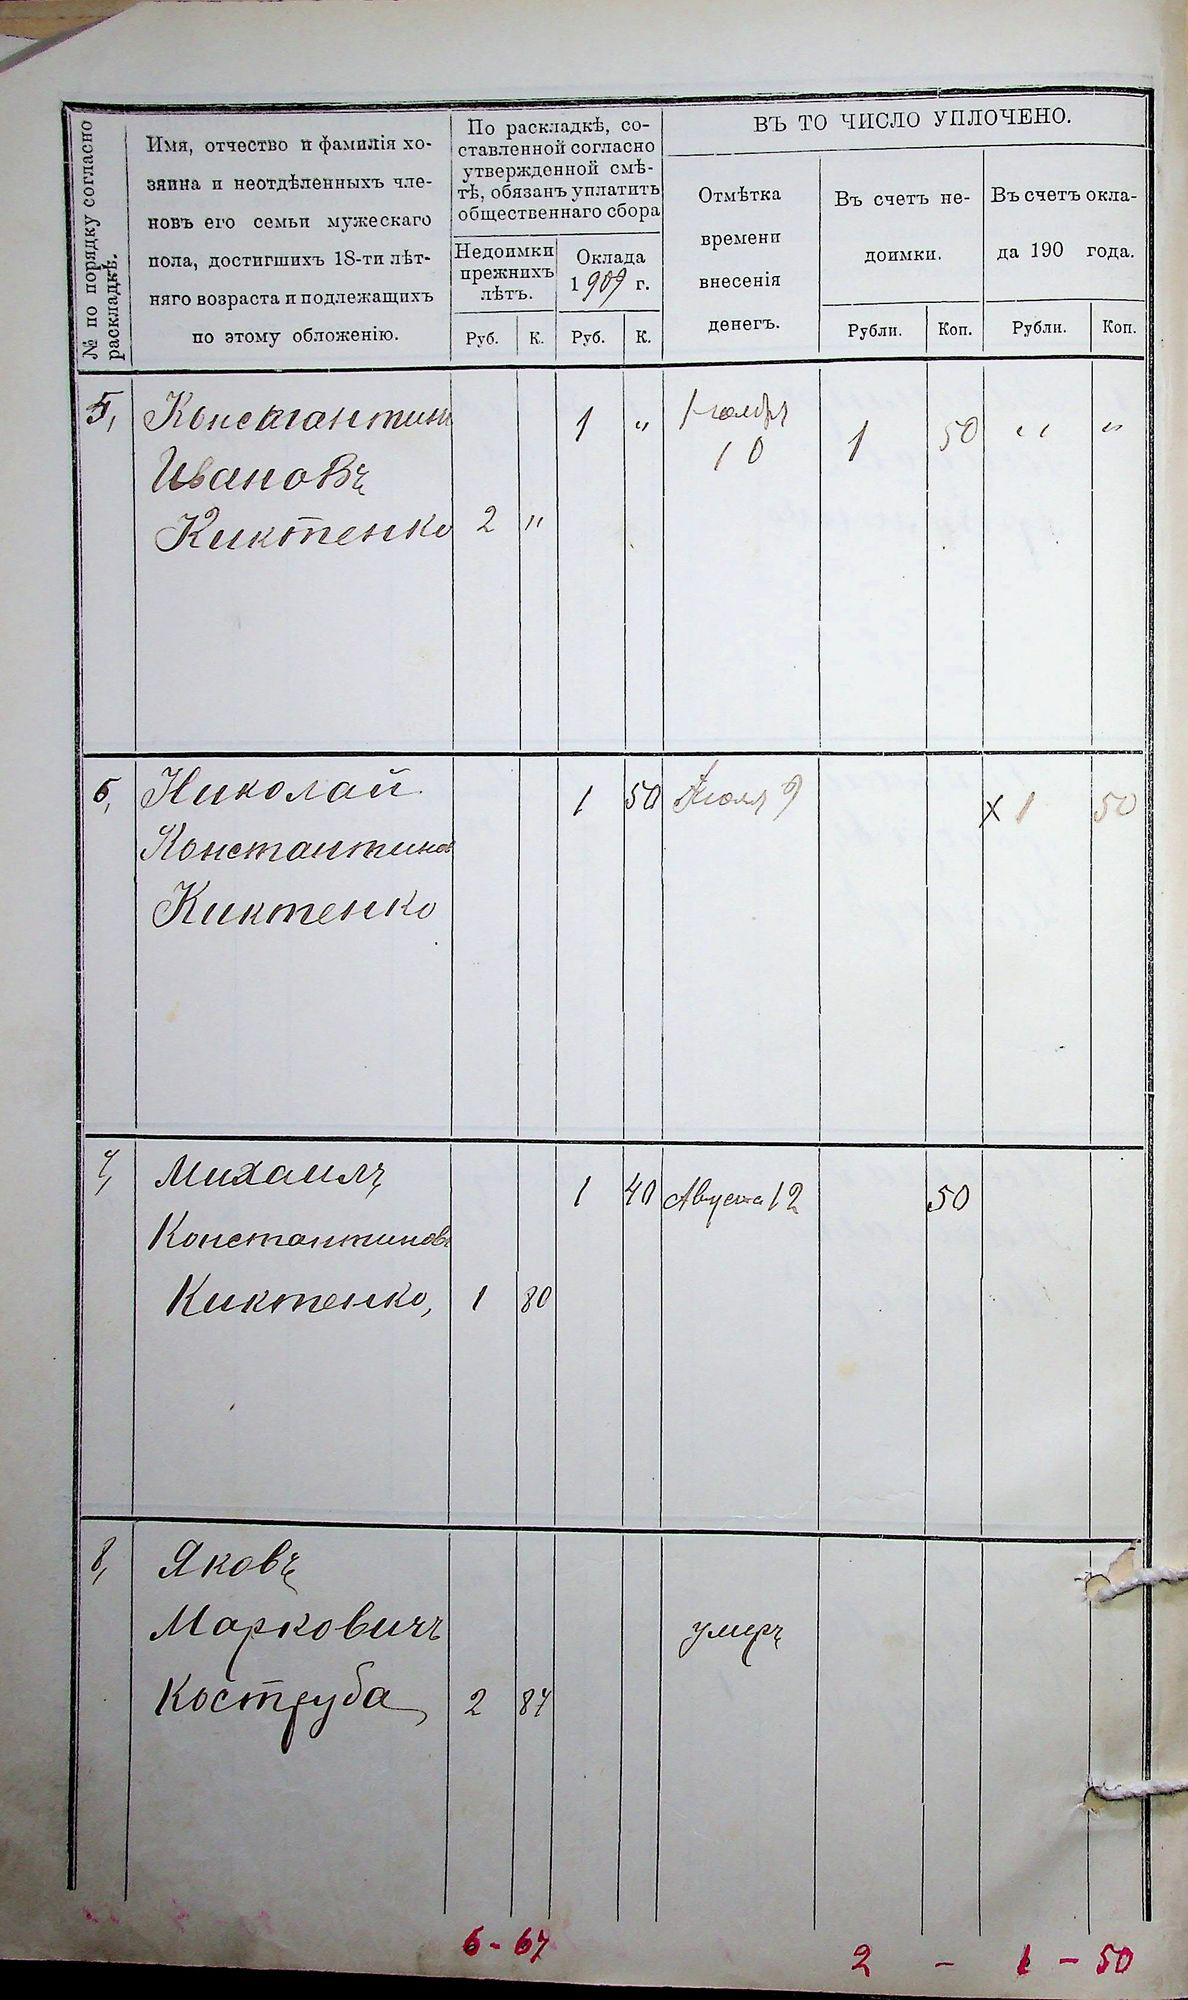 № по порядку согласно
раскладкѣ.
Имя, отчество и фамилія хо-
зяина и неотдѣленныхъ чле-
новъ его семьи мужескаго
пола, достигшихъ 18-ти лѣт-
няго возраста и подлежащихъ
по этому обложенію.
По раскладкѣ, со-
ставленной согласно
утвержденной смѣ-
тѣ, обязанъ уплатить
общественнаго сбора
Недоимки
прежнихъ
лѣтъ.
Оклада
1909 г.
Руб. К. Руб. К.
ВЪ ТО ЧИСЛО УПЛОЧЕНО.
Отмѣтка
времени
внесенія
денегъ.
Въ счетъ не-
доимки.
Въ счетъ окла-
да 190 года.
Рубли. Коп. Рубли. Коп.
5, Константинъ 1 „ Ноябрь 1 50 „ „
Ивановъ 10
Киктенко 2 „
6, Николай 1 50 Іюля 9 X 1 50
Константинов
Киктенко
7, Михаилъ 1 40 Августа 12 50
Константиновъ
Киктенко, 1 80
8, Яковъ
Марковичъ умеръ
Коструба 2 87
6 - 67 2 - 1 - 50